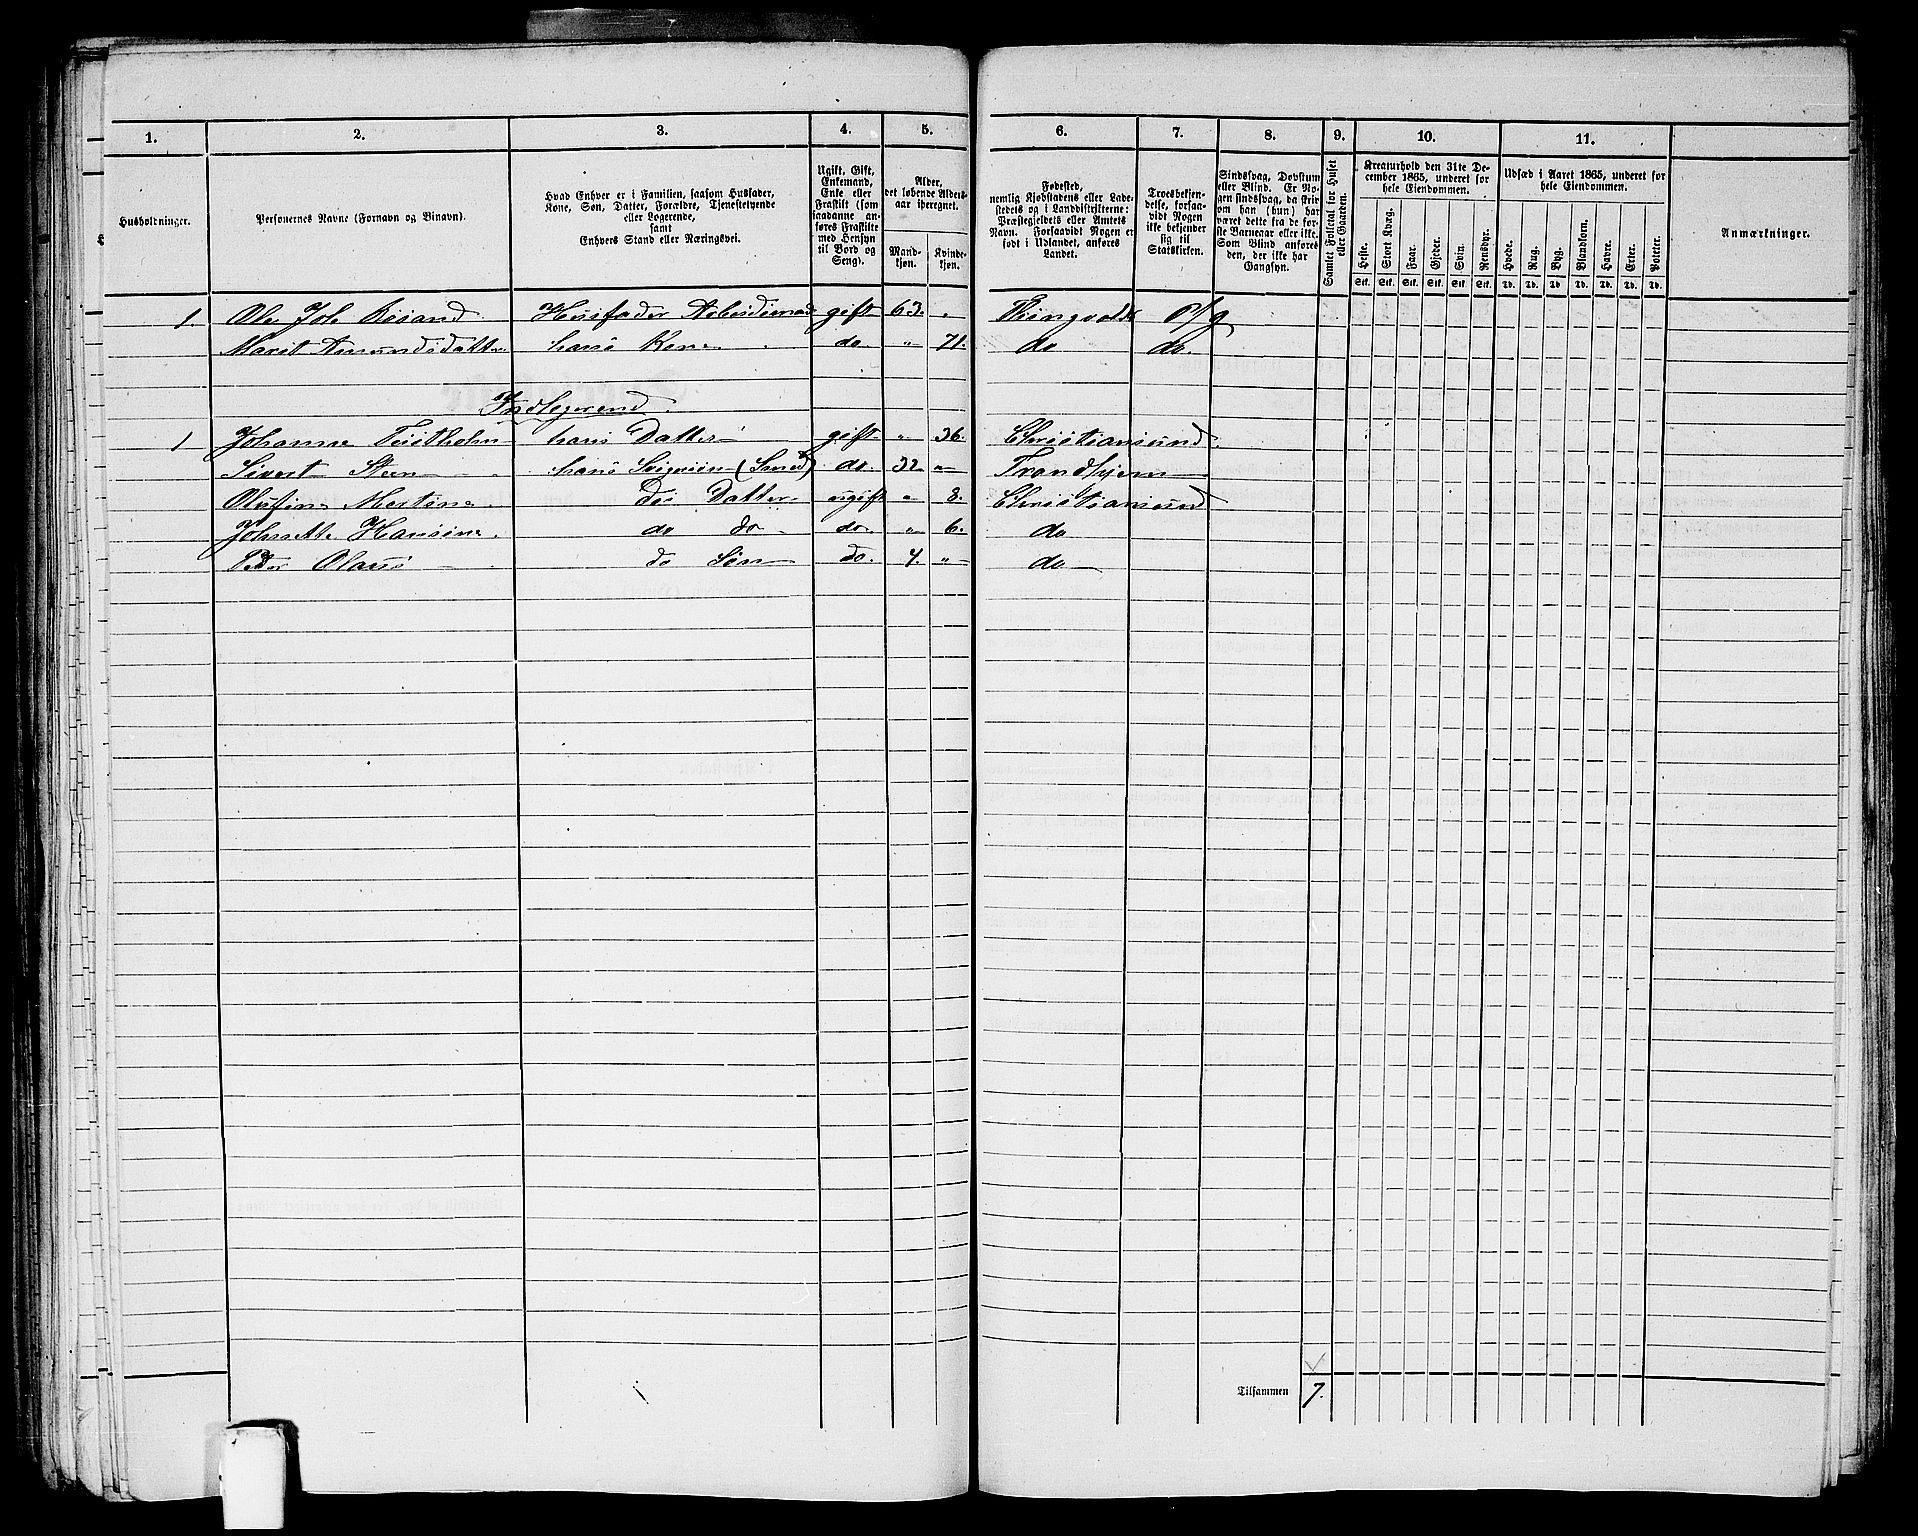 1. 2. 3. 4. 5. 6. 7. 8. 9. 10. 11.
Husholtninger.
Personernes Navne (Fornavn og Binavn).
Hvad Enhver er i Familien, saasom Husfader,
Kone, Søn, Datter, Forældre, Tjenestetyende
eller Logerende,
samt
Enhvers Stand eller Næringsvei.
Ugift, Gift,
Enkemand,
Enke eller
Fraskilt (som
saadanne an-
føres Fraskilte
med Hensyn
til Bord og
Seng).
Alder,
det løbende Alders-
aar iberegnet.
Mand-
kjøn.
Kvinde-
kjøn.
Fødested,
nemlig Kjøbstadens eller Lade-
stedets og i Landdistrikterne:
Præstegjeldets eller Amtets
Navn. Forsaavidt Nogen er
født i Udlandet, anføres
Landet.
Troesbekjen-
delse, forsaa-
vidt Nogen
ikke bekjender
sig til
Statskirken.
Sindssvag, Døvstum
eller Blind. Er No-
gen sindssvag, da skriv
om han (hun) har
været dette fra de for-
ste Barneaar eller ikke.
Som Blind anføres
den, der ikke har
Gangsyn.
Samlet Folketal for Huset
eller Gaarden.
Kreaturhold den 31te De-
cember 1865, underet for
hele Eiendommen.
Heste. Stort Kvæg. Faar. Gjeder. Svin. Rensdyr.
Stk. Stk. Stk. Stk. Stk. Stk.
Udsæd i Aaret 1865, underet for
hele Eiendommen.
Hvede. Rug. Byg. Blandkorn. Havre. Erter. Poteter.
Td. Td. Td. Td. Td. Td. Td.
Anmærkninger.
1. Ole Joh Husfader gift 63. "
Marit Amundsdatter hans Kone do. " 71. do do.
Indlogerend
1 Johanne hans Datter gift " 36. Christiansund
Sivert Steen hans Svigersøn (Smed) do. 32 " Trondhjem
Olufine Martine Des Datter ugift " 8. Christiansund
Johnette Hansine do do do. " 6. do
Peder Olaus do Søn do. 4. " do
Tilsammen 7.